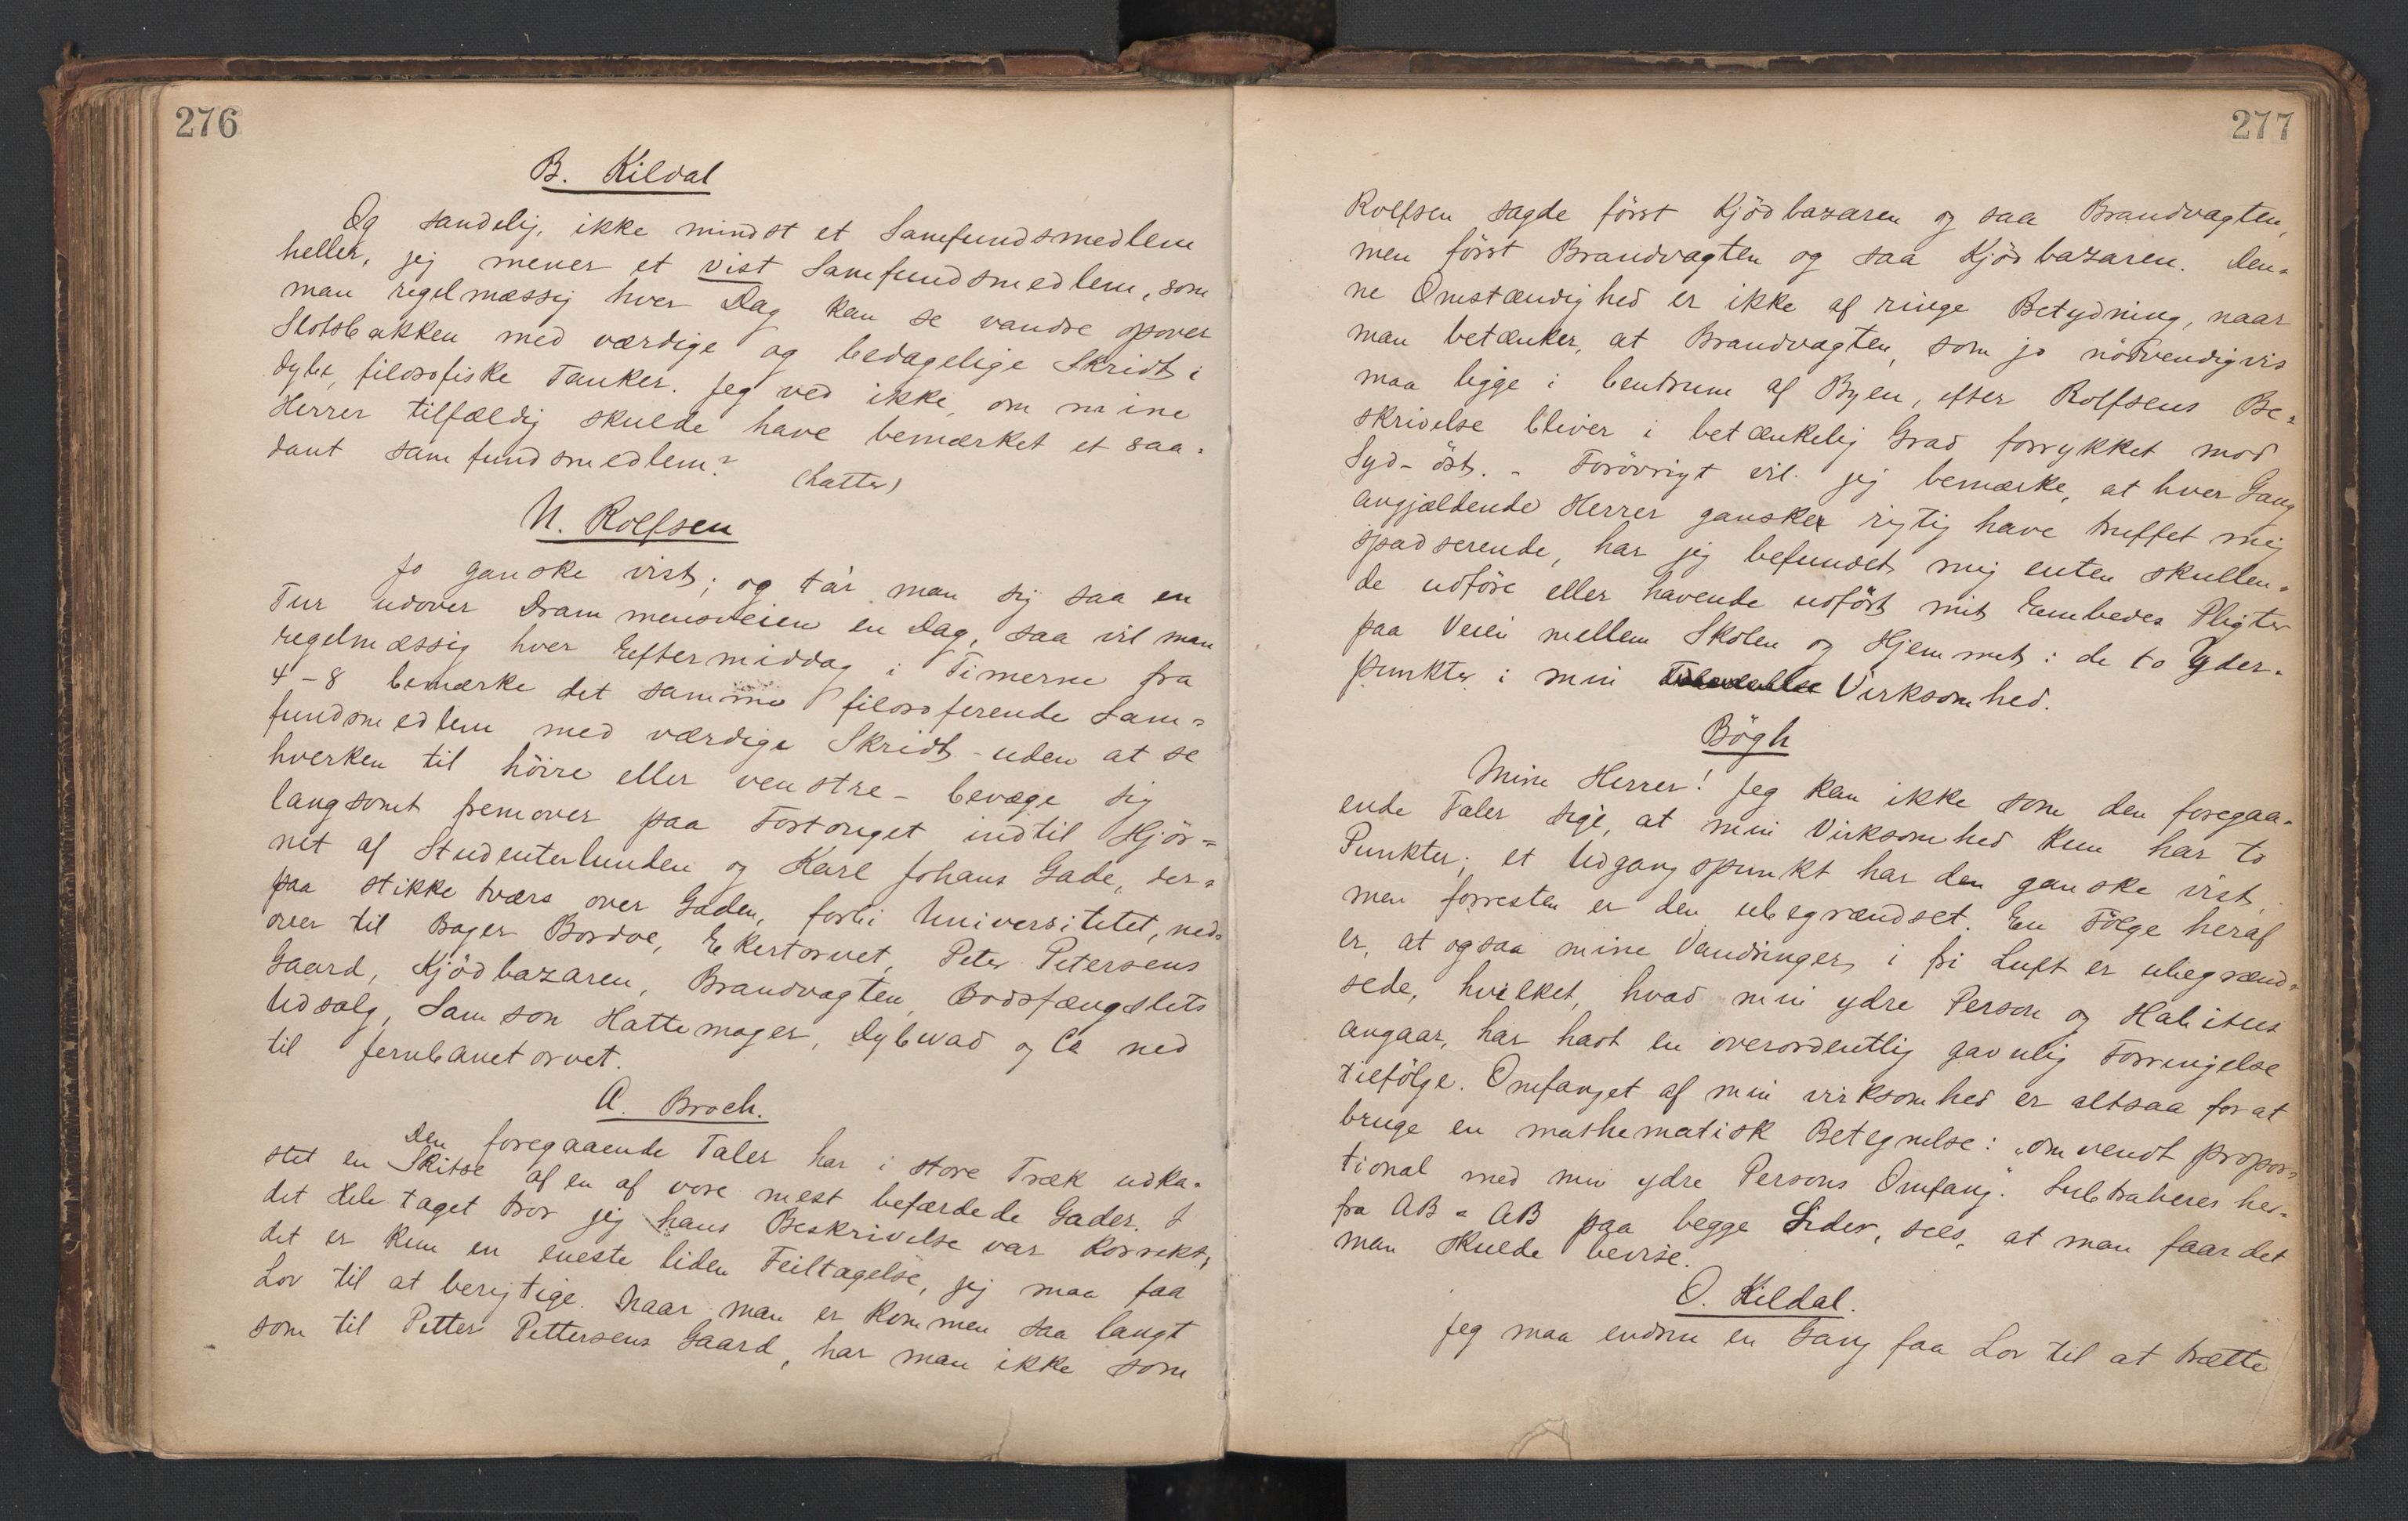 276
B. Kildal
Og sandelig, ikke mindst et Samfundsmedlem
heller, jeg mener et vist Samfundsmedlem, som
man regelmæssig hver Dag kan se vandre opover
Slotsbakken med værdige og bedagelige Skridt i
dybe, filosofiske Tanker. Jeg ved ikke, om mine
Herrer tilfældig skulde have bemærket et saa-
dant samfundsmedlem?
(Latter)
N. Rolfsen
Jo ganske vist; og tár man sig saa en
Tur udover Drammensveien en Dag, saa vil man
regelmæssig hver Eftermiddag i Timerne fra
4-8 bemærke det samme filosoferende Sam-
fundsmedlem med værdige Skridt - uden at se
hverken til höire eller venstre - bevæge sig
langsomt fremover paa Fortouget indtil Hjör-
net af Studenterlunden og Karl Johans Gade, der-
paa stikke tværs over Gaden, forbi Universitetet, ned-
over til Bager Bordoe, Ekertorvet, Peter Petersens
Gaard, Kjödbazaren, Brandvagten, Bodsfængslets
Udsalg, Samson Hattemager, Dybwad og Co ned
til Jernbanetorvet.
A. Broch.
Den foregaaende Taler har i store Træk udka-
stet en Skitse af en af vore mest befærdede Gader. I
det Hele taget tror jeg hans Beskrivelse var korrekt,
det er kun en eneste liden Feiltagelse, jeg maa faa
Lov til at berigtige. Naar man er kommen saa langt
som til Petter Pettersens Gaard, har man ikke som
277
Rolfsen sagde först Kjödbazaren og saa Brandvagten,
men först Brandvagten og saa Kjödbazaren. Den-
ne Omstændighed er ikke af ringe Betydning, naar
man betænker, at Brandvagten, som jo nödvendigvis
maa ligge i Centrum af Byen, efter Rolfsens Be-
skrivelse bliver i betænkelig Grad forrykket mod
Syd-öst. - Forövrigt vil jeg bemærke, at hver Gang
angjældende Herrer ganske rigtig have truffet mig
spadserende, har jeg befundet mig enten skullen-
de udföre eller havende udfört mit Embedes Pligter
paa Veien mellem Skolen og Hjemmet: de to Yder-
punkter i min Virksomhed.
Bögh
Mine Herrer! Jeg kan ikke som den foregaa-
ende Taler sige, at min Virksomhed kun har to
Punkter; et Udgangspunkt har den ganske vist,
men forresten er den ubegrændset. En Fölge heraf
er, at ogsaa mine Vandringer i fri Luft er ubegrænd-
sede, hvilket, hvad min ydre Person og Habitus
angaar, har havt en overordentlig gavnlig Forringelse
tilfölge. Omfanget af min virksomhed er altsaa for at
bruge en mathematisk Betegnelse: "omvendt propor-
tional med min ydre Persons Omfang". Subtraheres her-
fra AB = AB paa begge Sider, sees, at man faar det
man skulde bevise.
O. Kildal.
Jeg maa endnu en Gang faa Lov til at trætte